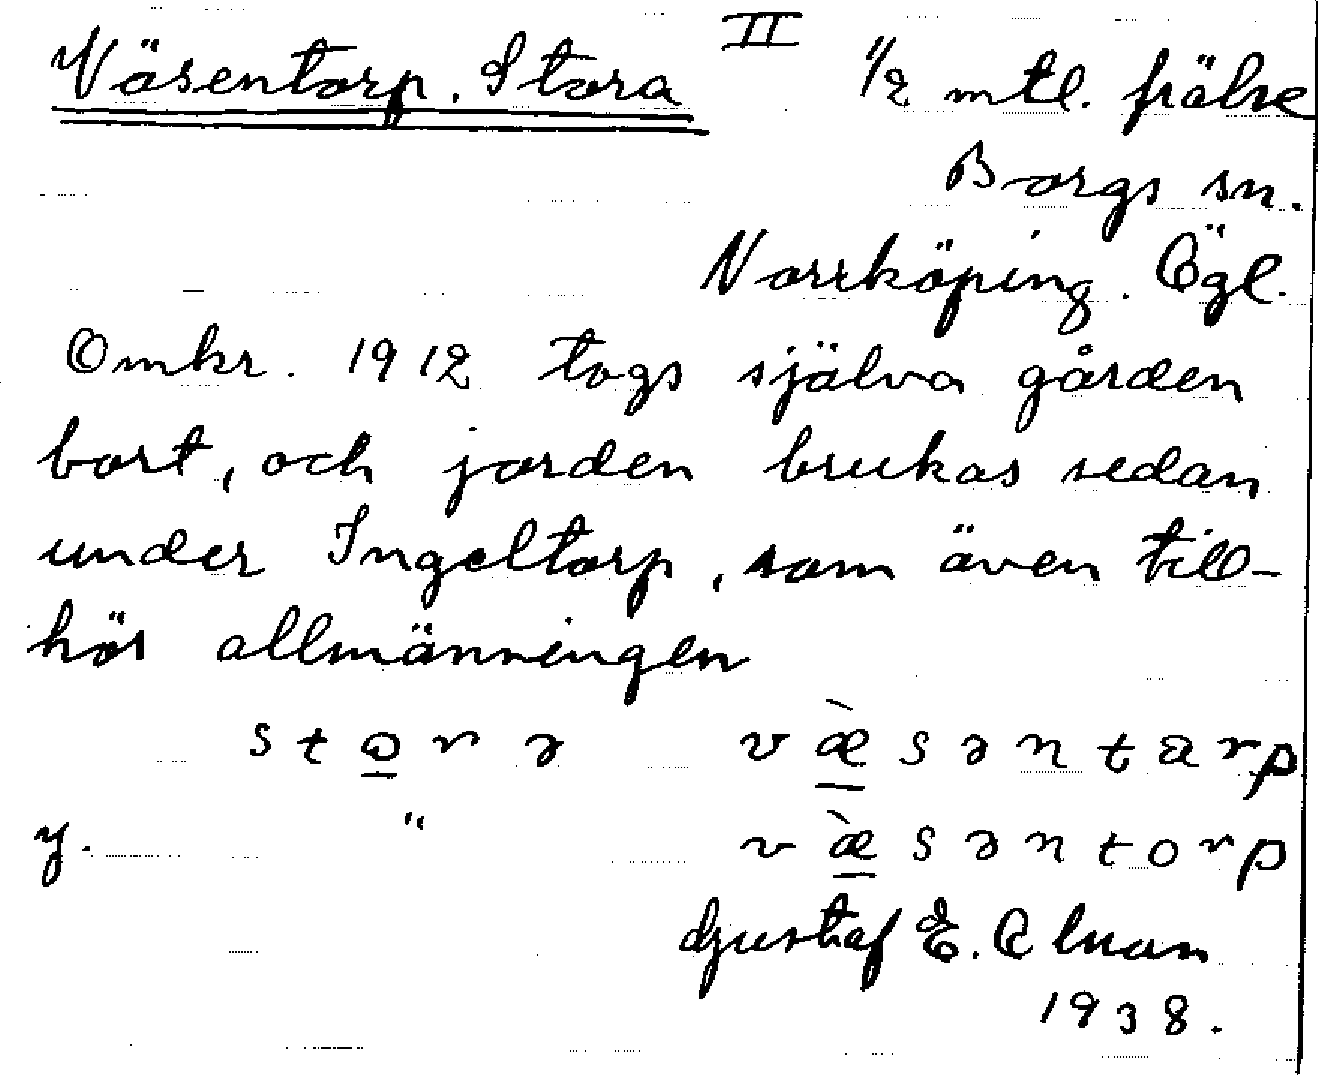 Väsentorp, Stora II 1/2 mtl. frälse
Borgs sn.
Norrköping. Ögl.
Omkr. 1912 togs själva gården
bort, och jorden brukas sedan
under Ingeltorp, som även till-
hör allmänningen
stoꞛə væ̀səntarp
y. " væ̀səntorp
Gustaf E. Alman
1938.